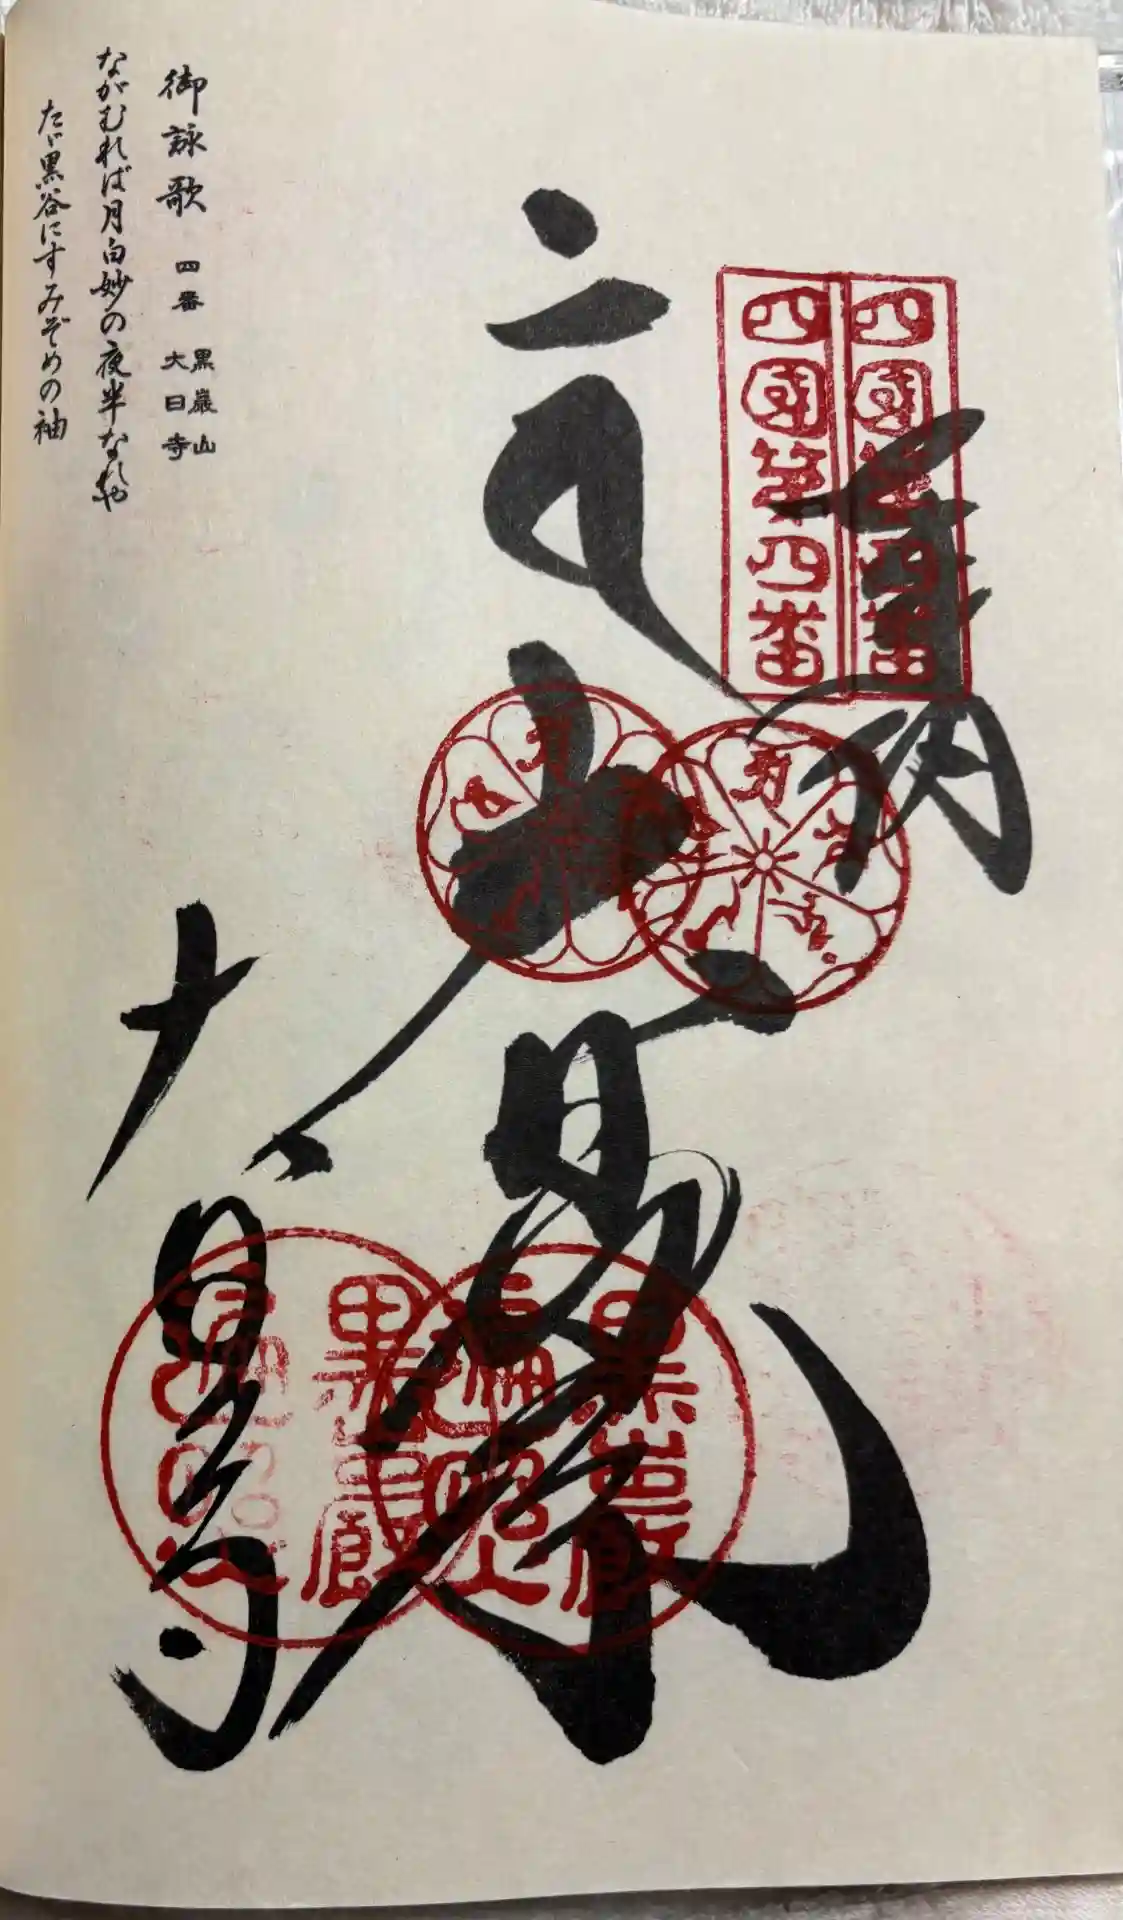 奉納
四國第四番
四國第四番
大日如来
黒巌
遍照
黒巌
遍照
大日寺
御詠歌 四番 黒巌山 大日寺
ながむれば月白妙の夜半なれや
たゞ黒谷にすみぞめの袖